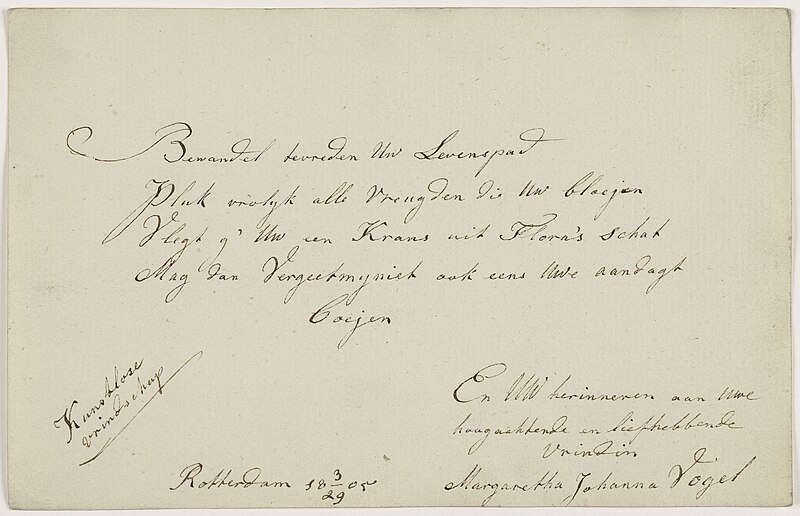 Bewandel tevreden Uw Levenspad
Pluk vrolyk alle Vreugden die Uw bloejen
Vlegt g' Uw een Krans uit Flora's schat
Mag dan Vergeetmyniet ook eens Uwe aandagt
boejen
Kunstlose
vrindschap
En UW herinneren aan Uwe
hoogachtende en liefhebbende
Vrindin
Rotterdam 18 3/29 05
Margaretha Johanna Vogel